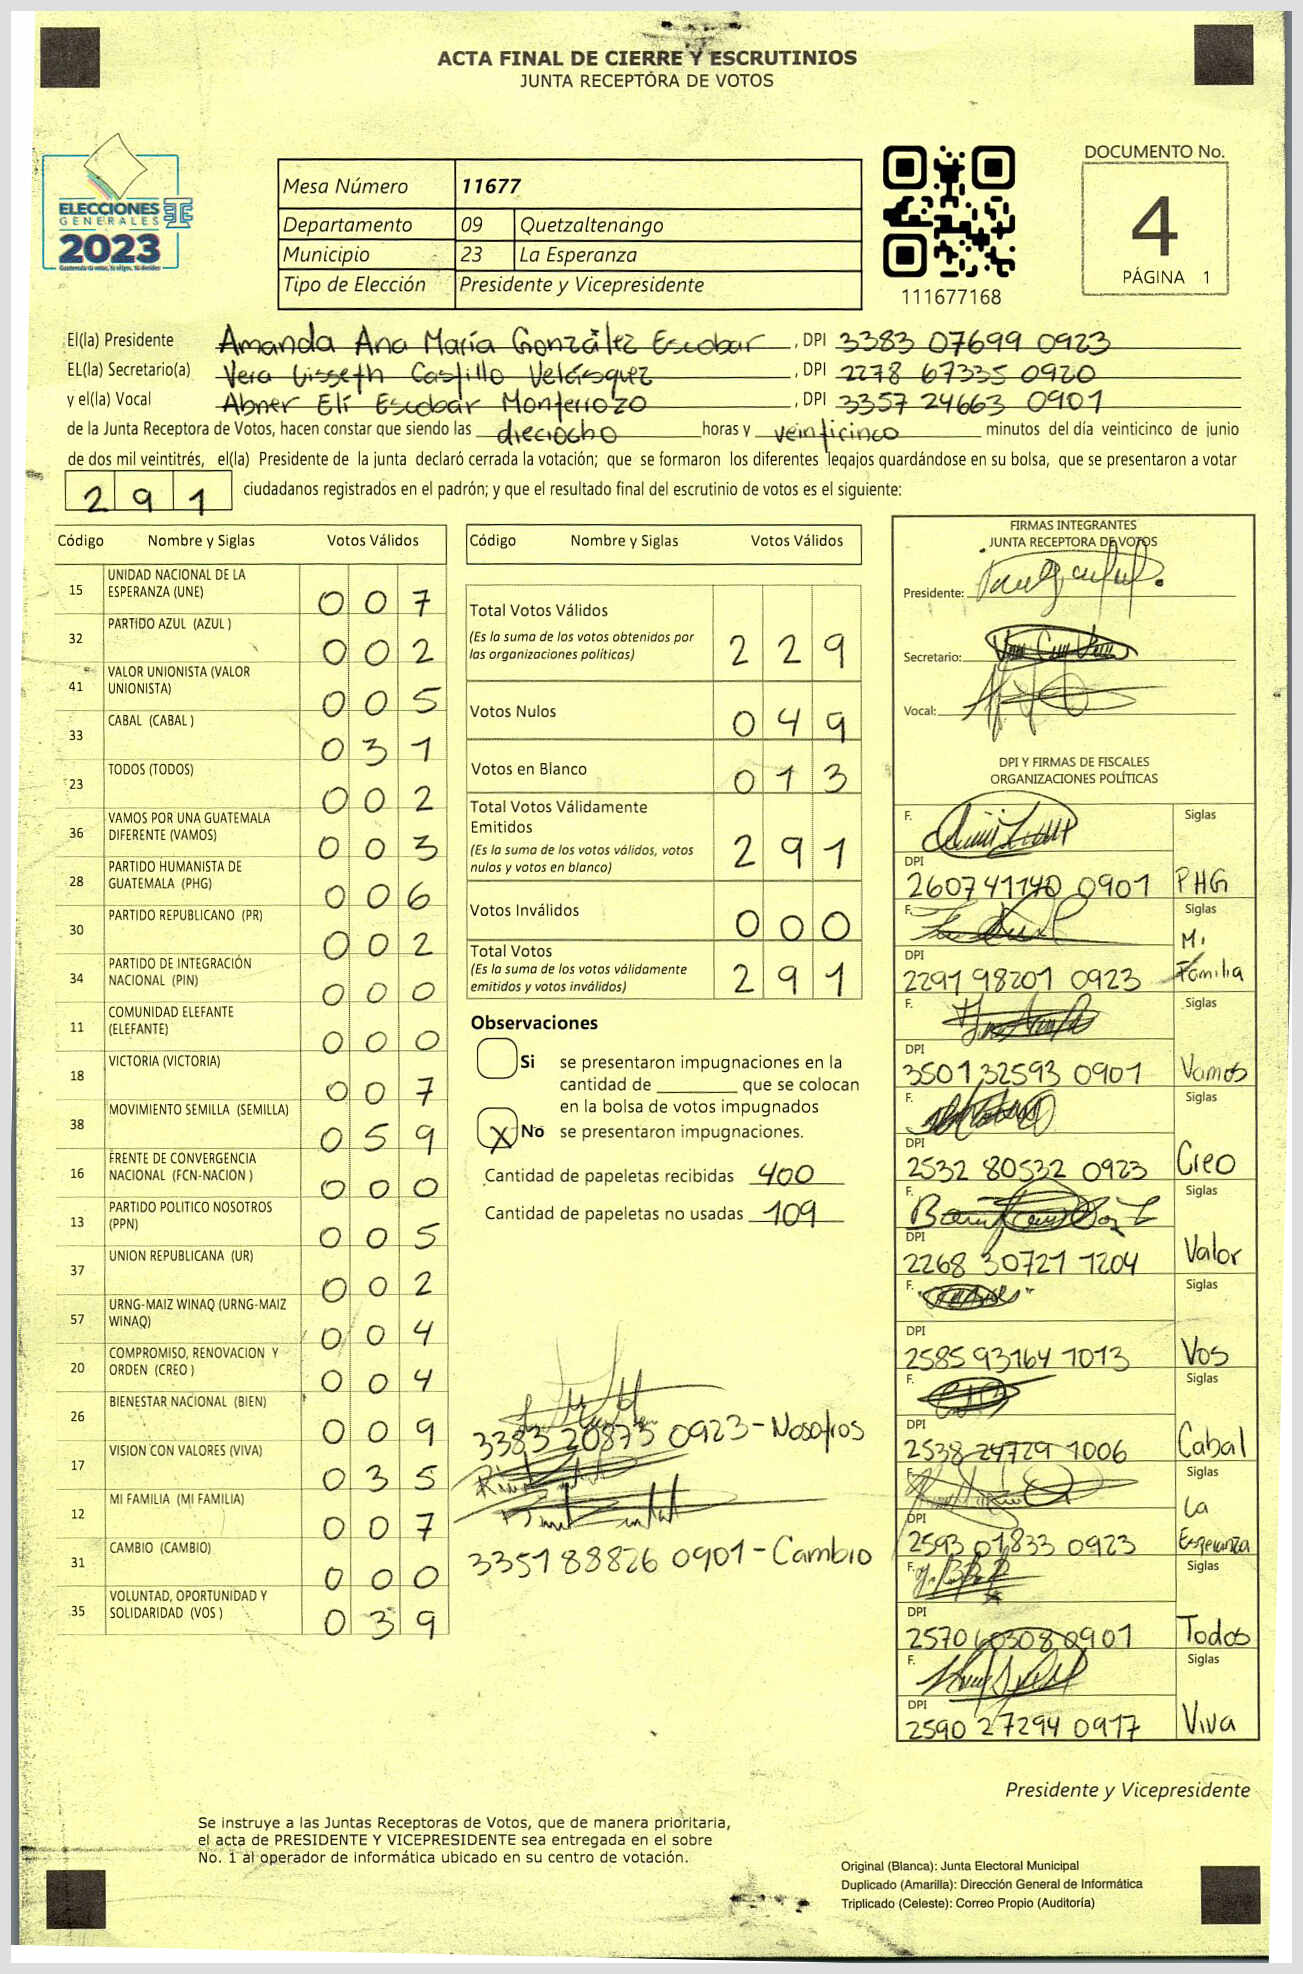 ACTA FINAL DE CIERRE Y ESCRUTINIOS
JUNTA RECEPTORA DE VOTOS
ELECCIONES
GENERALES
2023
Mesa Número 11677
Departamento 09 Quetzaltenango
Municipio 23 La Esperanza
Tipo de Elección Presidente y Vicepresidente
111677168
DOCUMENTO No.
4
PÁGINA 1
El(la) Presidente Amanda Ana María González Escobar, DPI 3383 07699 0923
EL(la) Secretario(a) Vera Lisseth Castillo Velásquez, DPI 2278 67335 0920
y el(la) Vocal Abner Elí Escobar Monterrozo, DPI 3357 24663 0901
de la Junta Receptora de Votos, hacen constar que siendo las dieciocho horas y veinticinco minutos del día veinticinco de junio
de dos mil veintitrés, el(la) Presidente de la junta declaró cerrada la votación; que se formaron los diferentes legajos guardándose en su bolsa, que se presentaron a votar
291 ciudadanos registrados en el padrón; y que el resultado final del escrutinio de votos es el siguiente:
Código Nombre y Siglas Votos Válidos
15 UNIDAD NACIONAL DE LA ESPERANZA (UNE) 007
32 PARTIDO AZUL (AZUL ) 002
41 VALOR UNIONISTA (VALOR UNIONISTA) 005
33 CABAL (CABAL ) 031
23 TODOS (TODOS) 002
36 VAMOS POR UNA GUATEMALA DIFERENTE (VAMOS) 003
28 PARTIDO HUMANISTA DE GUATEMALA (PHG) 006
30 PARTIDO REPUBLICANO (PR) 002
34 PARTIDO DE INTEGRACIÓN NACIONAL (PIN) 000
11 COMUNIDAD ELEFANTE (ELEFANTE) 000
18 VICTORIA (VICTORIA) 007
38 MOVIMIENTO SEMILLA (SEMILLA) 059
16 FRENTE DE CONVERGENCIA NACIONAL (FCN-NACION ) 000
13 PARTIDO POLITICO NOSOTROS (PPN) 005
37 UNION REPUBLICANA (UR) 002
57 URNG-MAIZ WINAQ (URNG-MAIZ WINAQ) 004
20 COMPROMISO, RENOVACION Y ORDEN (CREO ) 004
26 BIENESTAR NACIONAL (BIEN) 009
17 VISION CON VALORES (VIVA) 035
12 MI FAMILIA (MI FAMILIA) 007
31 CAMBIO (CAMBIO) 000
35 VOLUNTAD, OPORTUNIDAD Y SOLIDARIDAD (VOS ) 039
Código Nombre y Siglas Votos Válidos
Total Votos Válidos 229
(Es la suma de los votos obtenidos por
las organizaciones políticas)
Votos Nulos 049
Votos en Blanco 013
Total Votos Válidamente
Emitidos 291
(Es la suma de los votos válidos, votos
nulos y votos en blanco)
Votos Inválidos 000
Total Votos 291
(Es la suma de los votos válidamente
emitidos y votos inválidos)
Observaciones
Si se presentaron impugnaciones en la
cantidad de ________ que se colocan
en la bolsa de votos impugnados
X No se presentaron impugnaciones.
Cantidad de papeletas recibidas 400
Cantidad de papeletas no usadas 109
3383 20873 0923 - Nosotros
3351 88826 0901 - Cambio
FIRMAS INTEGRANTES
JUNTA RECEPTORA DE VOTOS
Presidente:
Secretario:
Vocal:
DPI Y FIRMAS DE FISCALES
ORGANIZACIONES POLÍTICAS
F. Siglas
DPI 2607 41140 0901 PHG
F. Siglas
DPI 2291 98201 0923 Mi Familia
F. Siglas
DPI 3501 32593 0901 Vamos
F. Siglas
DPI 2532 80532 0923 Creo
F. Siglas
DPI 2268 30721 1204 Valor
F. Siglas
DPI 2585 93164 1013 Vos
F. Siglas
DPI 2538 24729 1006 Cabal
F. Siglas
DPI 2593 01833 0923 La Esperanza
F. Siglas
DPI 2570 60308 0901 Todos
F. Siglas
DPI 2590 27294 0917 Viva
Presidente y Vicepresidente
Se instruye a las Juntas Receptoras de Votos, que de manera prioritaria,
el acta de PRESIDENTE Y VICEPRESIDENTE sea entregada en el sobre
No. 1 al operador de informática ubicado en su centro de votación.
Original (Blanca): Junta Electoral Municipal
Duplicado (Amarilla): Dirección General de Informática
Triplicado (Celeste): Correo Propio (Auditoría)